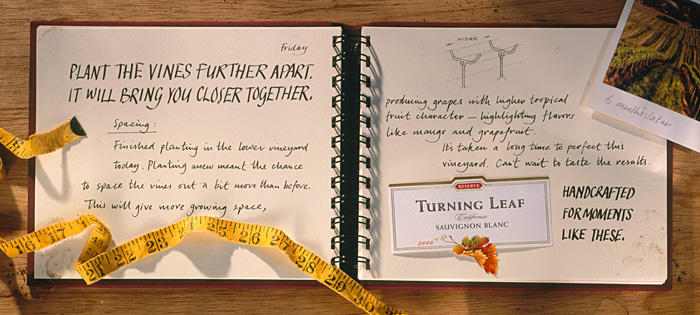 Friday
PLANT THE VINES FURTHER APART.
IT WILL BRING YOU CLOSER TOGETHER.
Spacing:
Finished planting in the lower vineyard
today. Planting anew meant the chance
to space the vines out a bit more than before.
This will give more growing space,
WIDER
producing grapes with higher tropical
fruit character — highlighting flavors
like mango and grapefruit.
It's taken a long time to perfect this
vineyard. Can't wait to taste the results.
RESERVE
TURNING LEAF
California
SAUVIGNON BLANC
2006
HANDCRAFTED
FOR MOMENTS
LIKE THESE.
6 months later
16 17 18 19 20
21 22 23 24 25 26 27 28 29 30